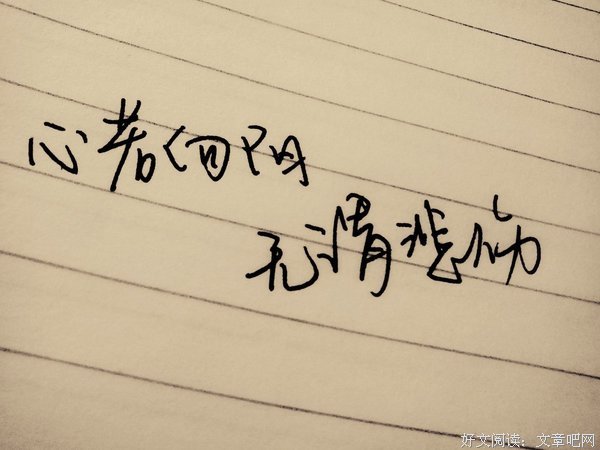 心若向阳
无谓悲伤
好文阅读：文章吧网